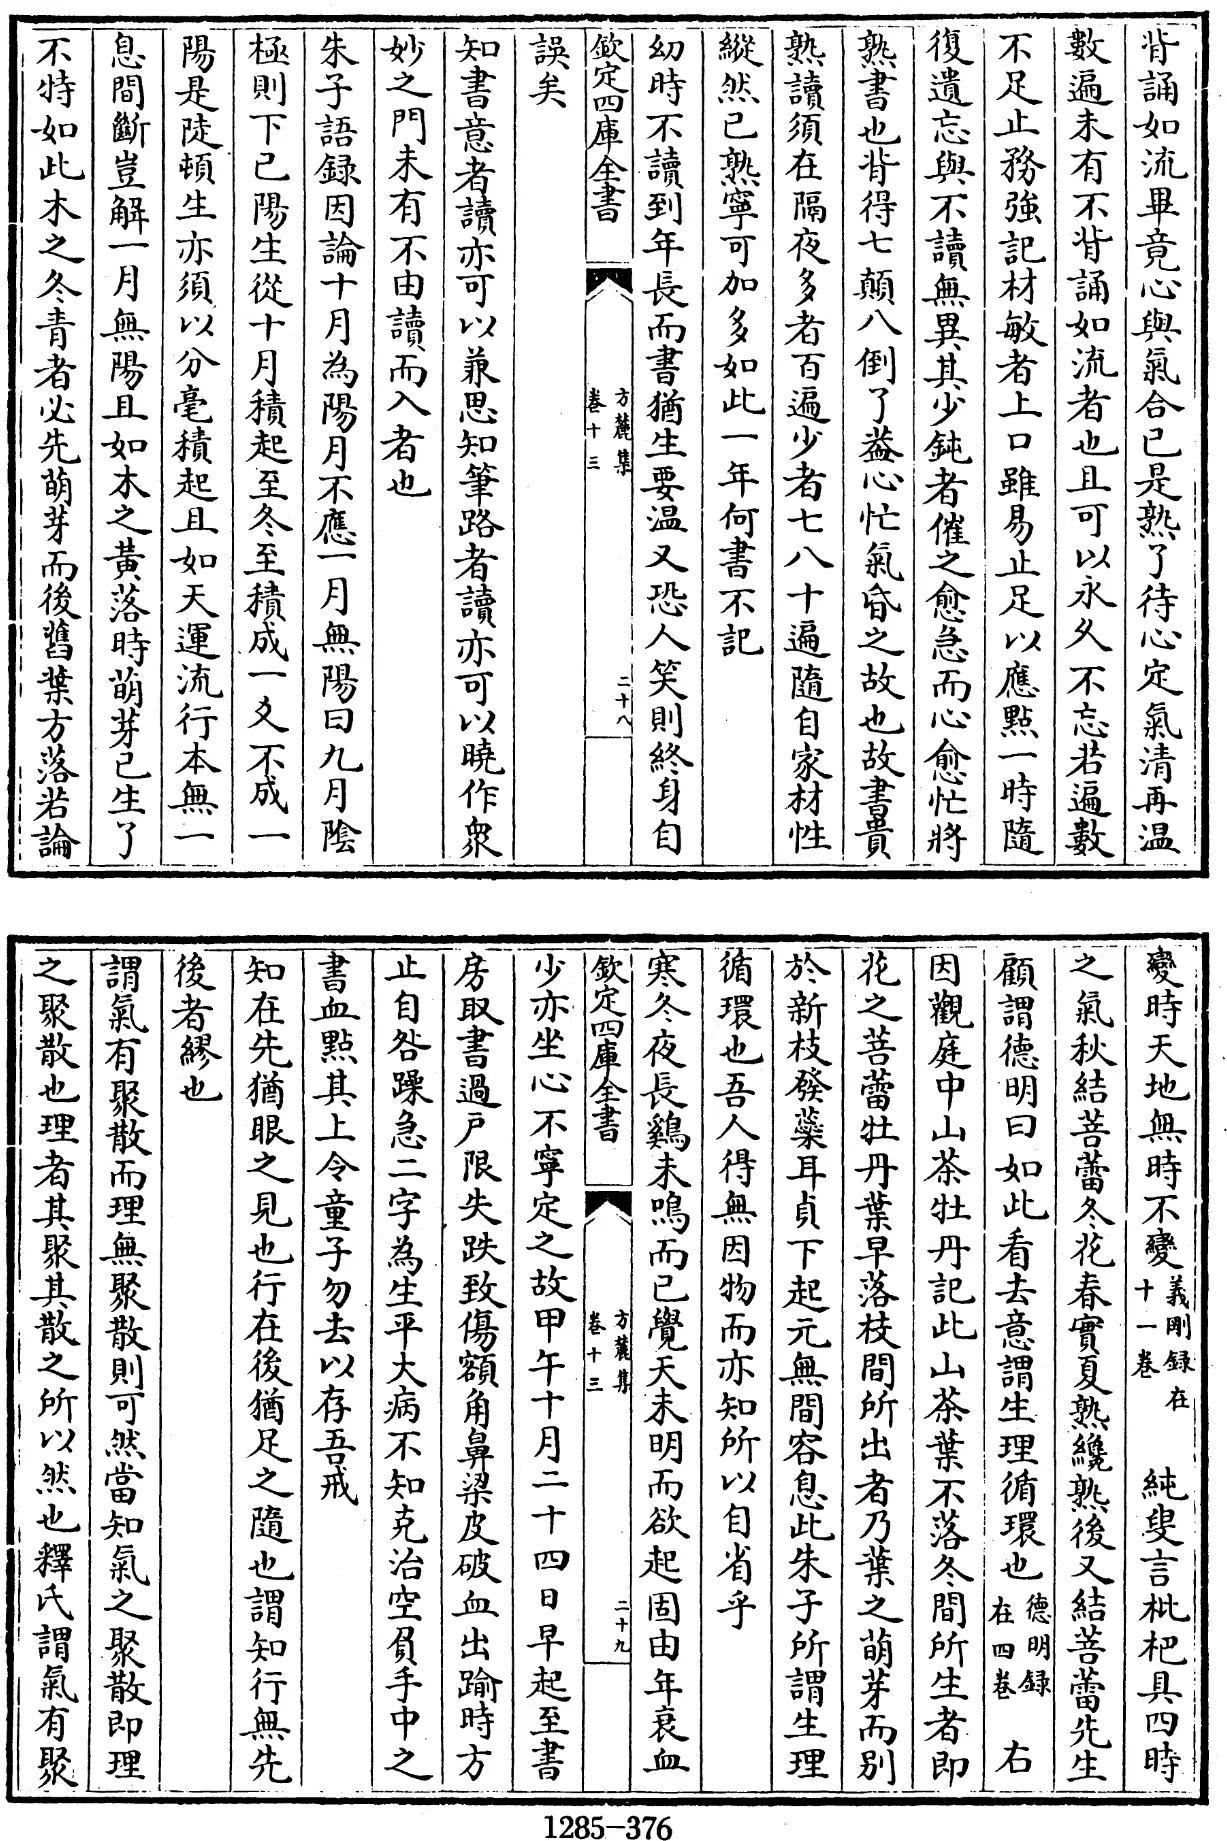 背誦如流畢竟心與氣合已是熟了待心定氣清再温
數遍未有不背誦如流者也且可以永久不忘若遍數
不足止務強記材敏者上口雖易止足以應點一時隨
復遺忘與不讀無異其少鈍者催之愈急而心愈忙將
熟書也背得七顛八倒了葢心忙氣昏之故也故書貴
熟讀須在隔夜多者百遍少者七八十遍隨自家材性
縱然已熟寧可加多如此一年何書不記
幼時不讀到年長而書猶生要温又恐人笑則終身自
欽定四庫全書
方麓集
卷十三
二十八
誤矣
知書意者讀亦可以兼思知筆路者讀亦可以曉作衆
妙之門未有不由讀而入者也
朱子語録因論十月為陽月不應一月無陽曰九月隂
極則下已陽生從十月積起至冬至積成一爻不成一
陽是陡頓生亦須以分毫積起且如天運流行本無一
息間斷豈解一月無陽且如木之黄落時萌芽已生了
不特如此木之冬青者必先萌芽而後舊葉方落若論
變時天地無時不變義剛録在十一卷 純叟言枇杷具四時
之氣秋結菩蕾冬花春實夏熟纔熟後又結菩蕾先生
顧謂德明曰如此看去意謂生理循環也德明録在四卷 右
因觀庭中山茶牡丹記此山茶葉不落冬間所生者即
花之菩蕾牡丹葉早落枝間所出者乃葉之萌芽而别
於新枝發蘂耳貞下起元無間容息此朱子所謂生理
循環也吾人得無因物而亦知所以自省乎
寒冬夜長鷄未鳴而已覺天未明而欲起固由年衰血
欽定四庫全書
方麓集
卷十三
二十九
少亦坐心不寧定之故甲午十月二十四日早起至書
房取書過戶限失跌致傷額角鼻梁皮破血出踰時方
止自咎躁急二字為生平大病不知克治空負手中之
書血點其上令童子勿去以存吾戒
知在先猶眼之見也行在後猶足之隨也謂知行無先
後者繆也
謂氣有聚散而理無聚散則可然當知氣之聚散即理
之聚散也理者其聚其散之所以然也釋氏謂氣有聚
1285-376